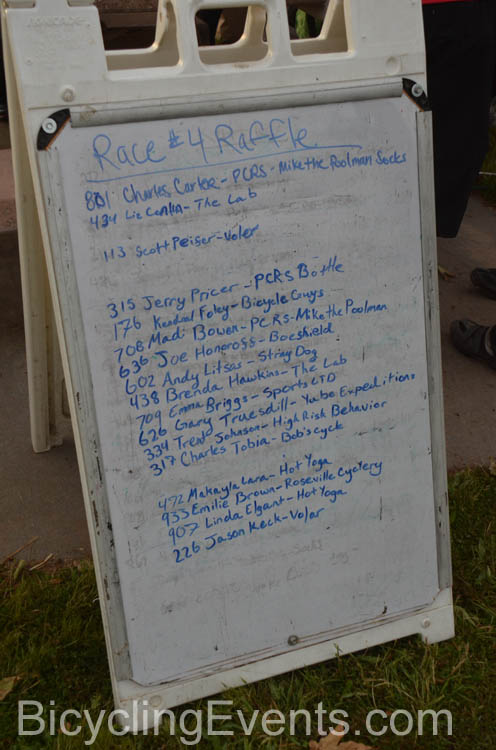 Race #4 Raffle
801 Charles Carlee - PCRS - Mike the Poolman Socks
434 Liz Conlin - The Lab
113 Scott Peiser - Voler
315 Jerry Pricer - PCRS Bottle
176 Kendral Foley - Bicycle Guys
708 Madi Bowen - PCRS - Mike the Poolman
636 Joe Honcrofs - Boeshield
602 Andy Litsas - Stray Dog
438 Brenda Hawkins - The Lab
709 Emma Briggs - Sports LTD
626 Gary Truesdill - Yube Expeditions
334 Trent Johnson - High Risk Behavior
317 Charles Tobia - Bob's cycle
472 Makayla Lara - Hot Yoga
933 Emilie Brown - Roseville Cyclery
907 Linda Elgant - Hot Yoga
226 Jason Keck - Volar
BicyclingEvents.com